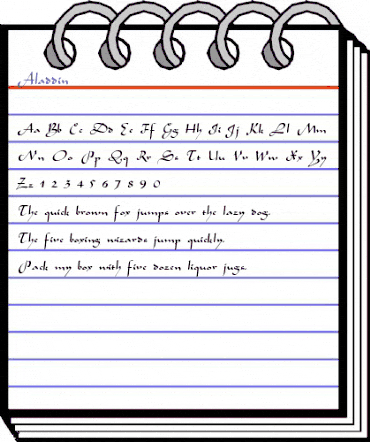 Aladdin
Aa Bb Cc Dd Ee Ff Gg Hh Ii Jj Kk Ll Mm
Nn Oo Pp Qq Rr Ss Tt Uu Vv Ww Xx Yy
Zz 1 2 3 4 5 6 7 8 9 0
The quick brown fox jumps over the lazy dog.
The five boxing wizards jump quickly.
Pack my box with five dozen liquor jugs.